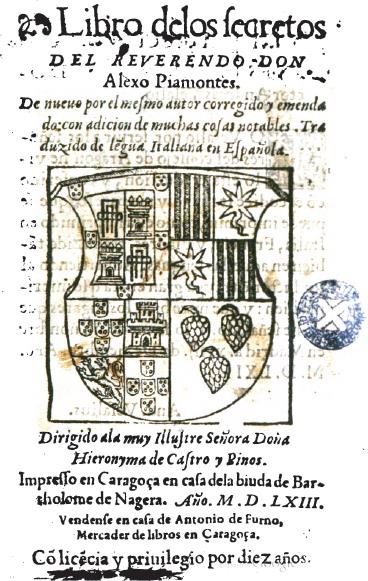 Libro delos secretos
DEL REVERENDO DON
Alexo Piamontes.
De nueuo por el mesmo autor corregido y emenda
do: con adicion de muchas cosas notables. Tra
duzido de lēgua Italiana en Española.
Dirigido ala muy Illustre Señora Doña
Hieronyma de Castro y Pinos.
Impresso en Caragoça en casa dela biuda de Bar-
tholome de Nagera. Año. M. D. LXIII.
Vendense en casa de Antonio de Furno,
Mercader de libros en Çaragoça.
Cō licēcia y priuilegio por diez años.